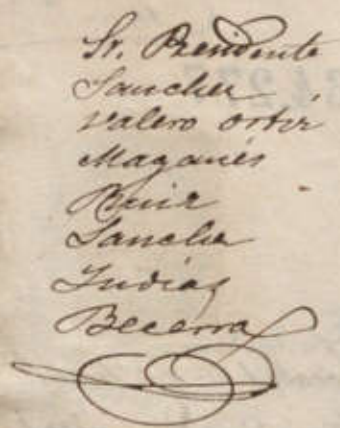 Sr. Presidente
Sanchez
Valero Ortiz
Maganés
Ruiz
Sanchez
Indias
Becerra